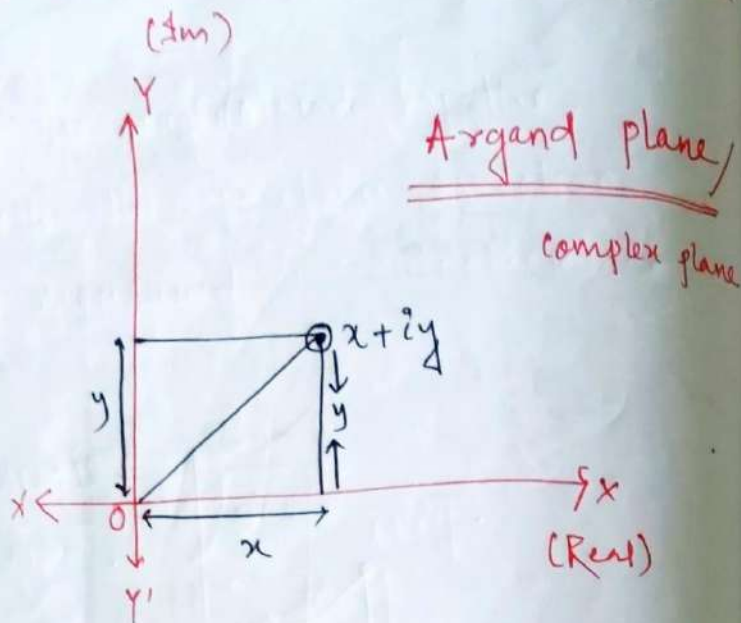 (Im)
Y
Argand plane/
complex plane
x+iy
y
y
X
O
x
X
(Real)
Y'